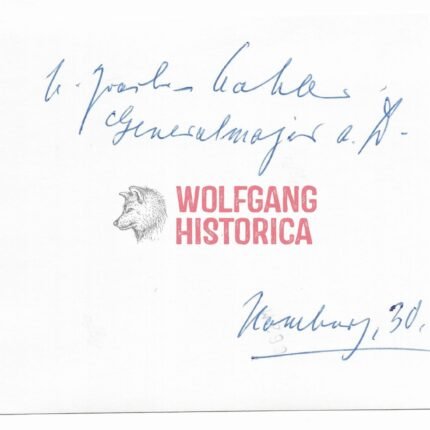 H. Joachim Kahler
Generalmajor a. D.
WOLFGANG
HISTORICA
Hamburg, 30.